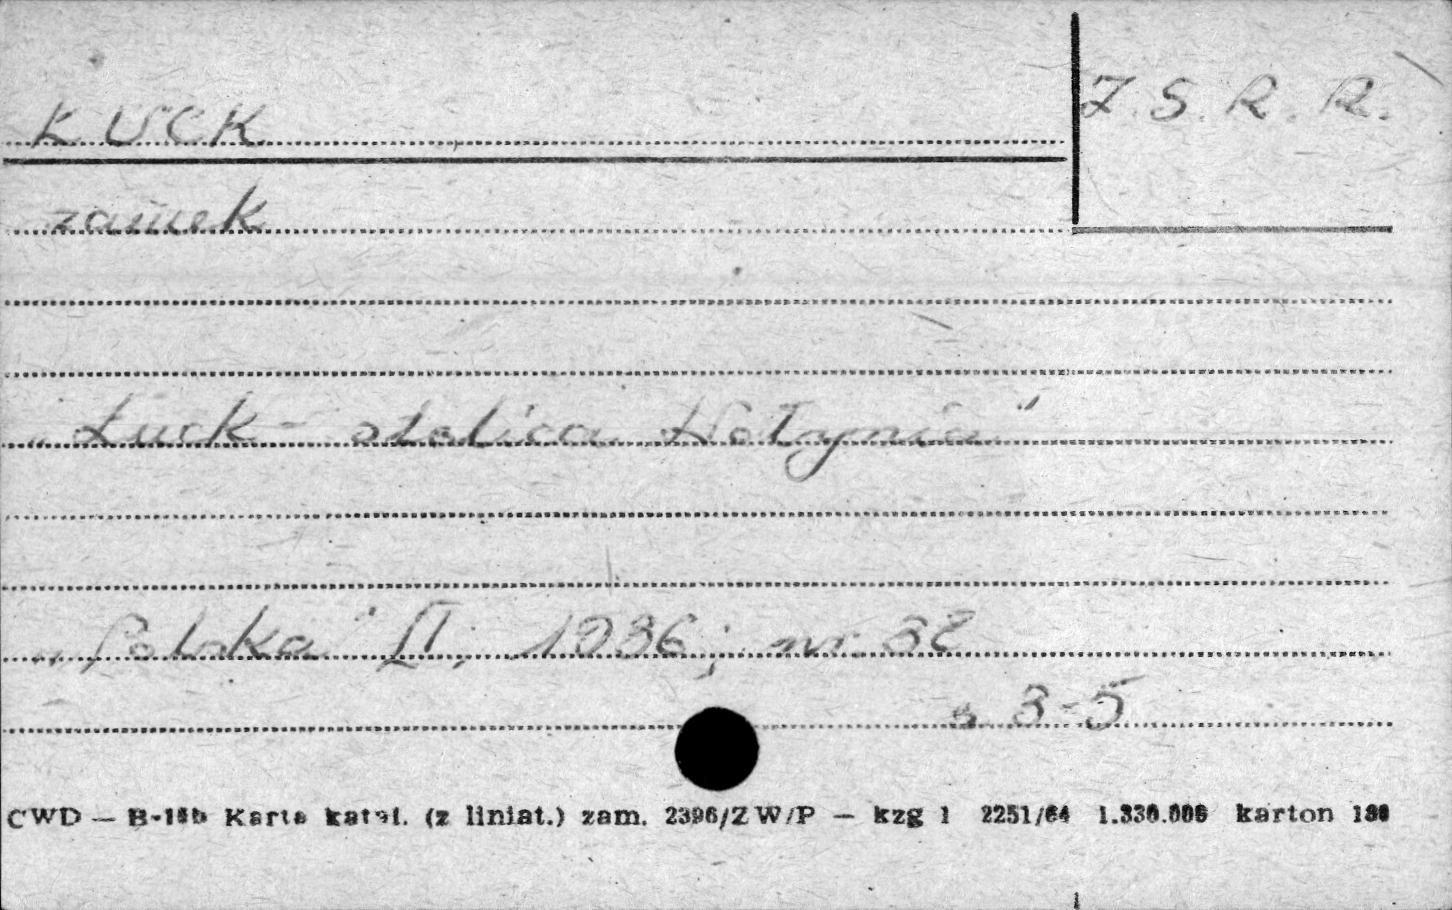 ŁUCK
Z.S.R.R.
zamek
„Łuck - stolica Wołynia"
„Polska" II, 1936; nr. 38
s. 3-5
CWD — B-18b Karta katal. (z liniat.) zam. 2396/ZW/P — kzg 1 2251/64 1.330.000 karton 180